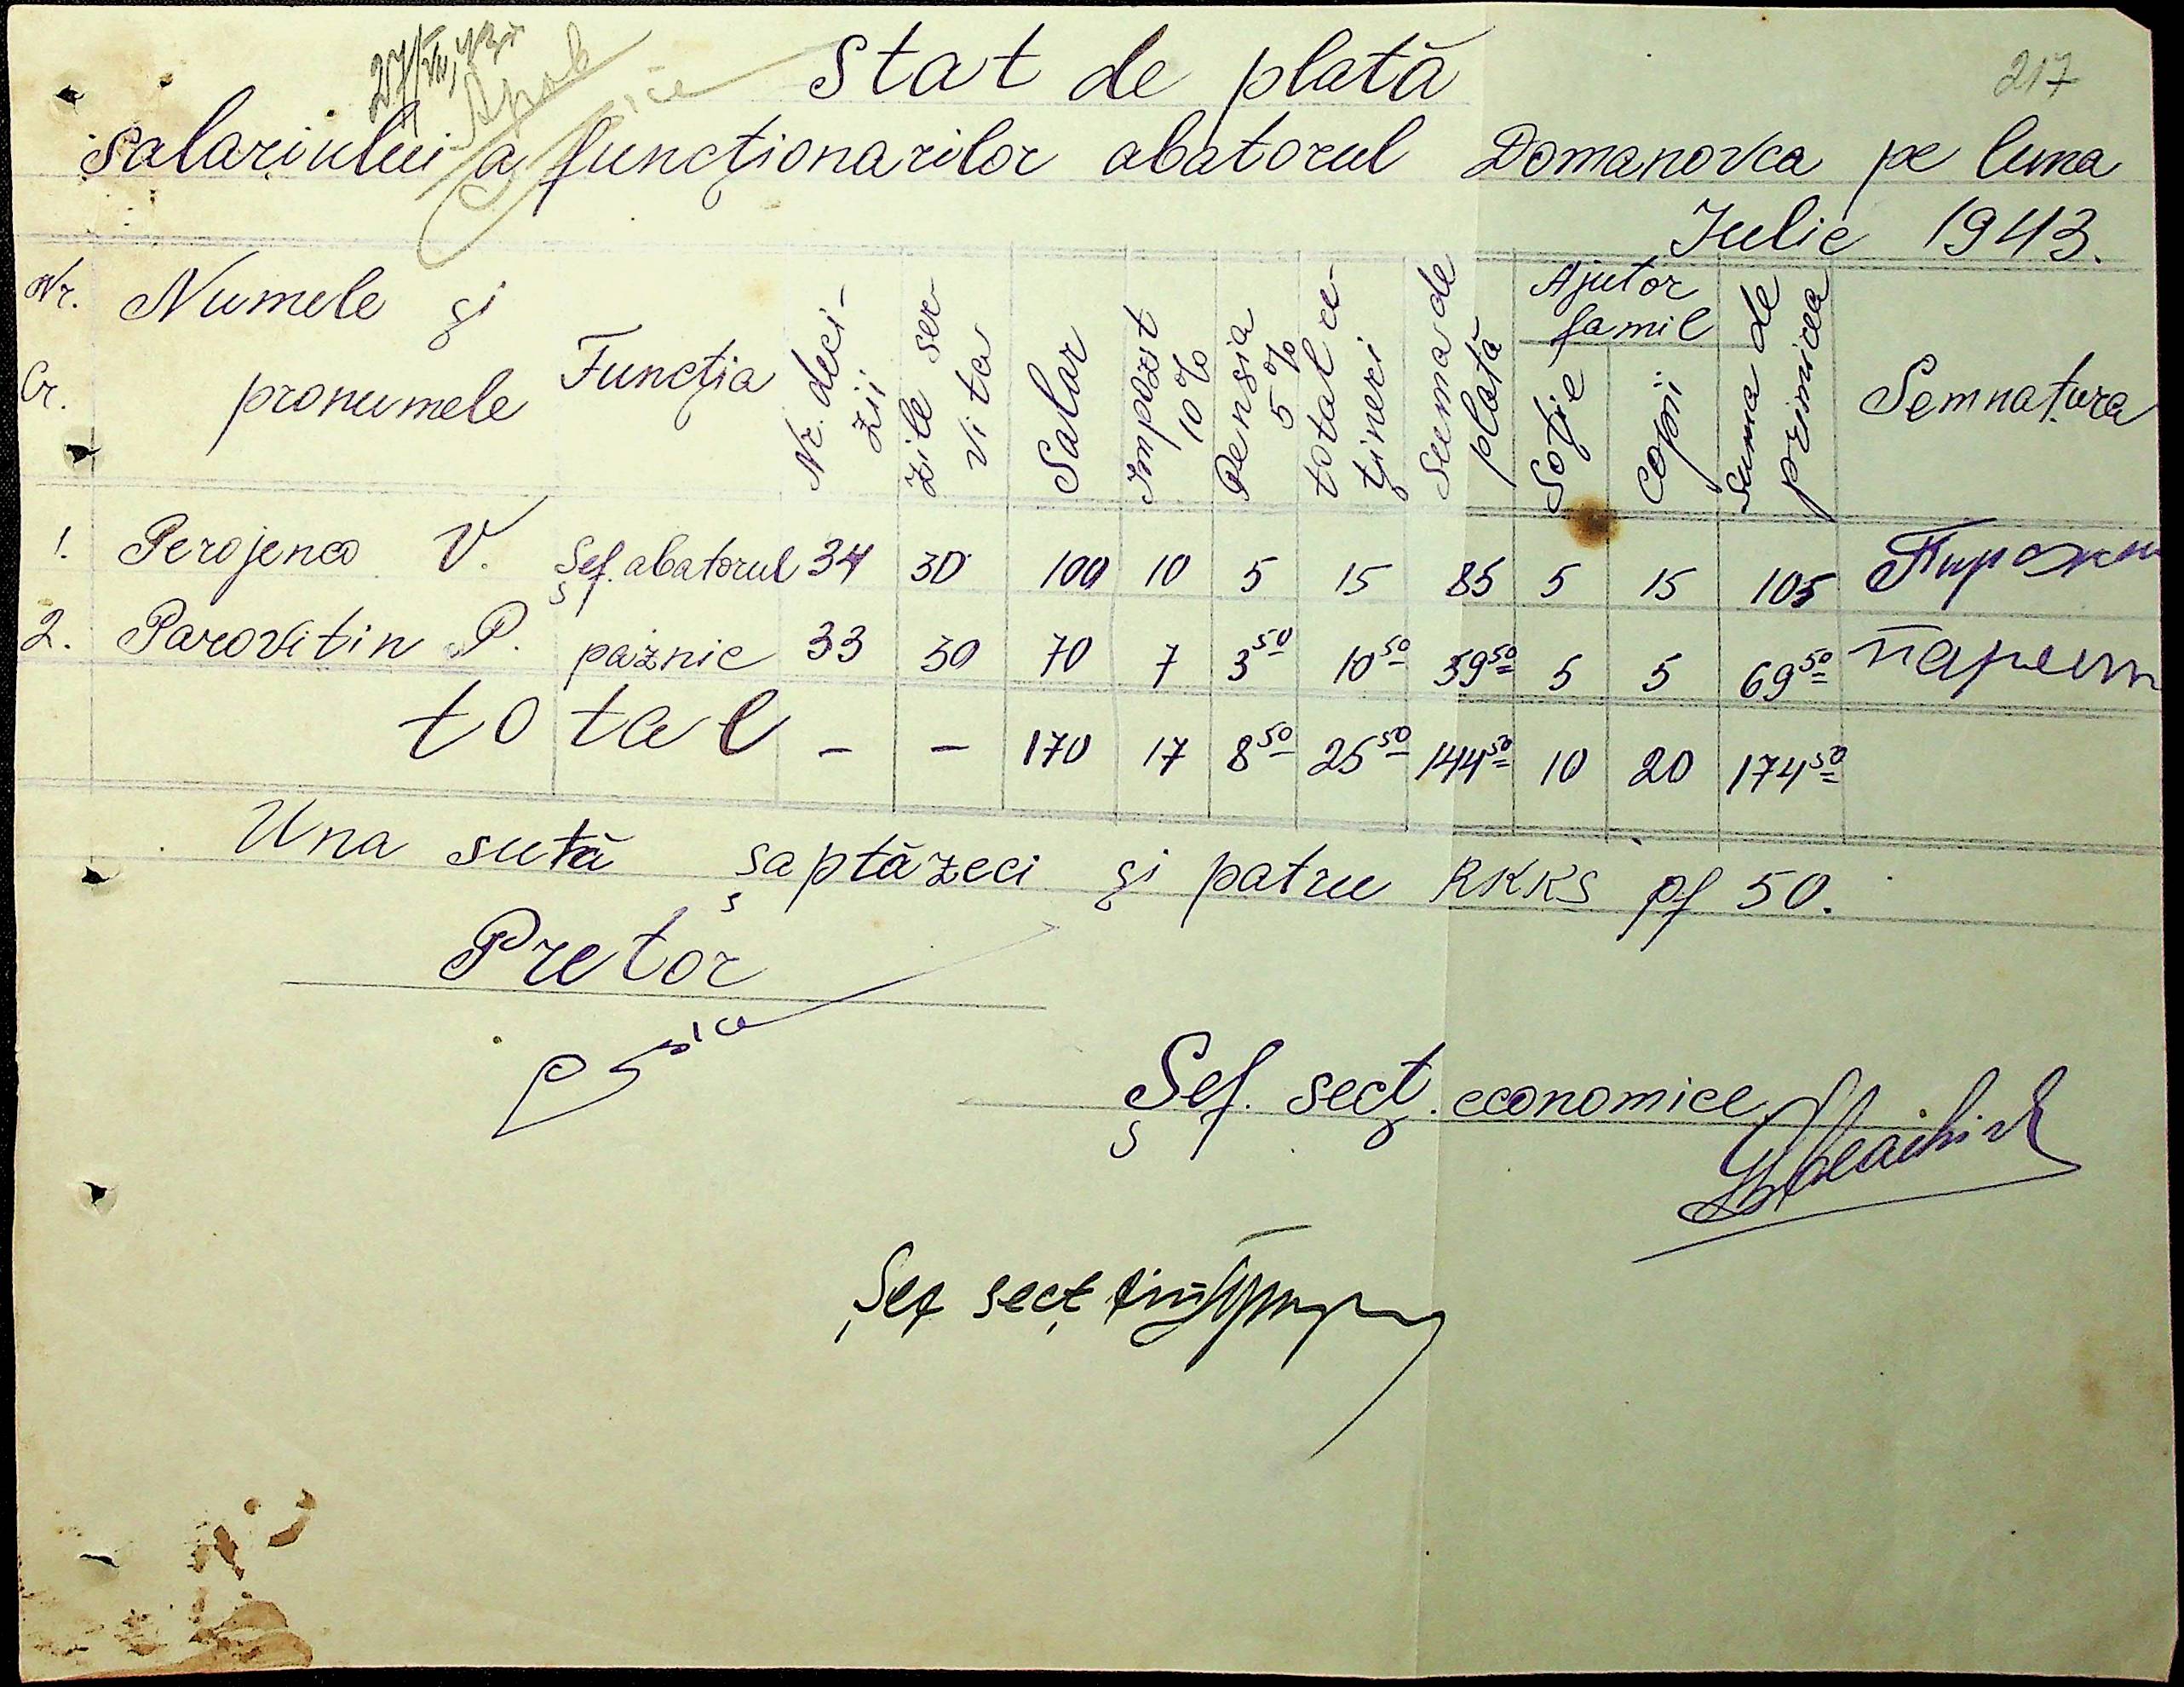 217
27/VII, 43
Aprob
Stat de plată
salariului a funcționarilor abatorul Domanovca pe luna
Iulie 1943.
Nr. Cr. Numele și pronumele Funcția Nr. deci-zii zile ser-vita Salar Impozit 10% Pensia 5% total re-țineri Suma de plată Ajutor famil Soție Copii Suma de primirea Semnatura
1. Perojenco V. Șef. abatorul 34 30 100 10 5 15 85 5 15 105
2. Parovitin P. paznic 33 30 70 7 3 50 10 50 59 50 5 5 69 50
total – – 170 17 8 50 25 50 144 50 10 20 174 50
Una sută șaptăzeci și patru RKKS pf 50.
Pretor
Șef. secț. economice
Șef secț fin